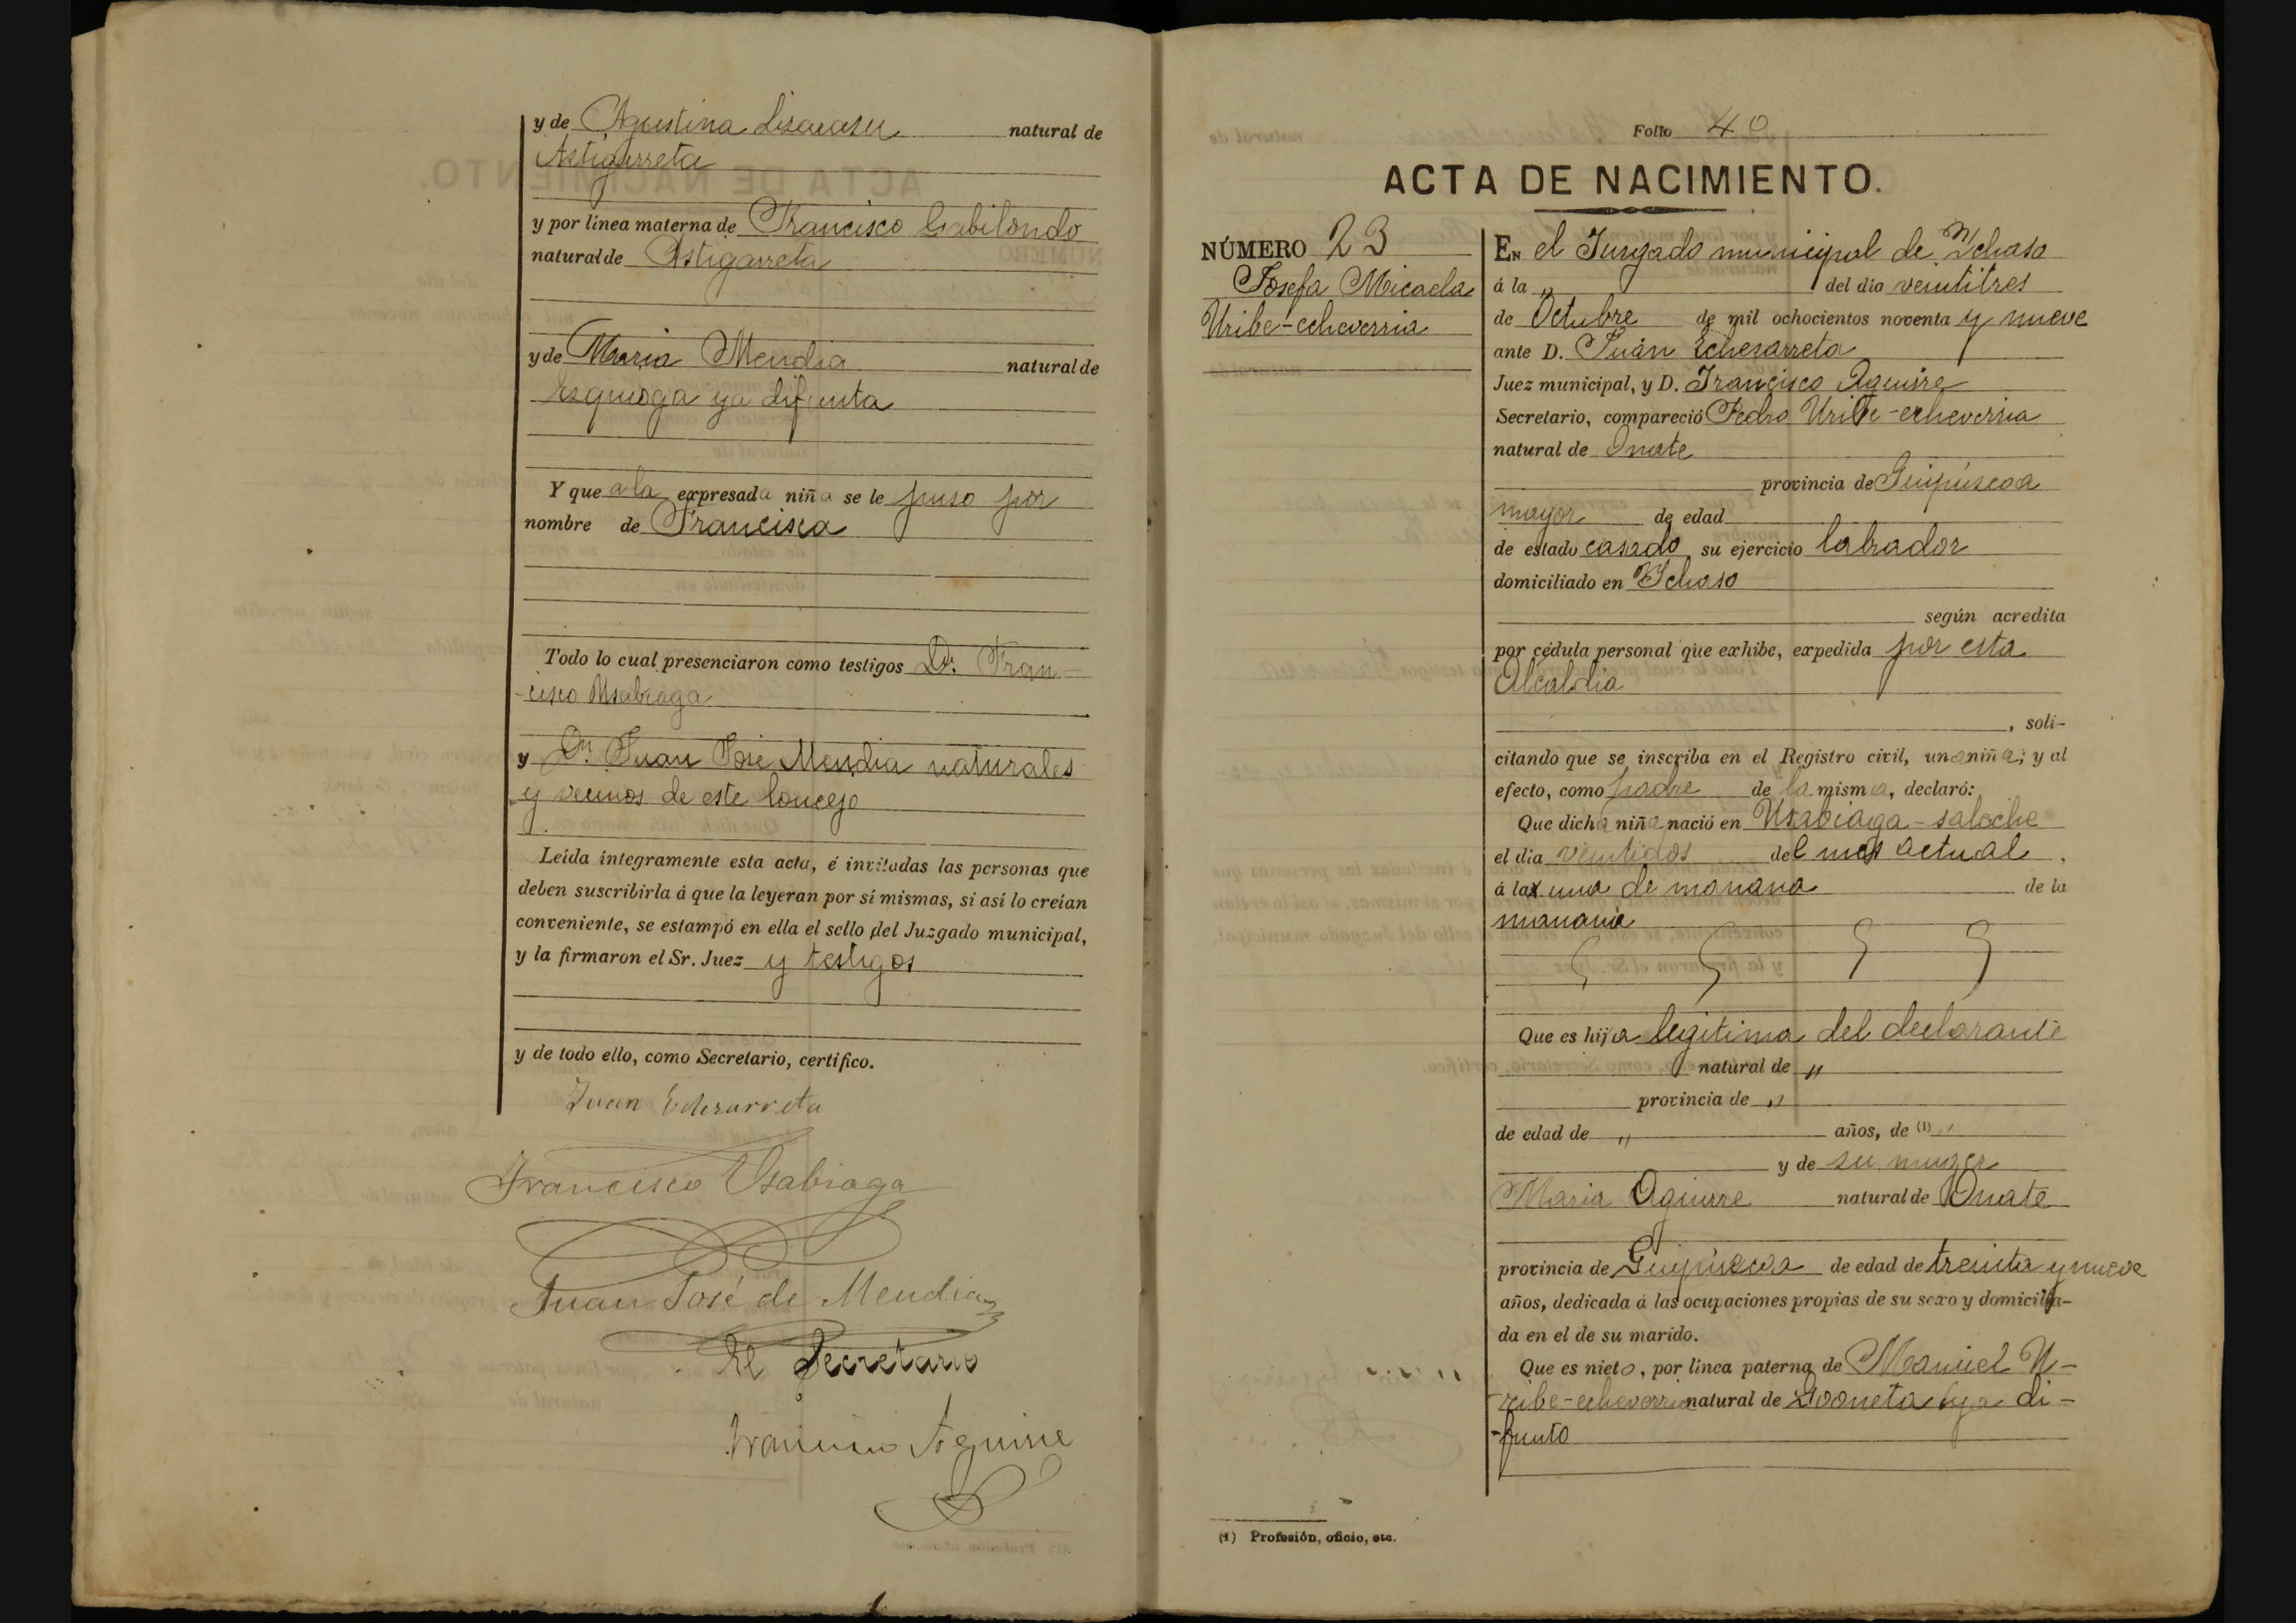 y de Agustina Lisarasu natural de
Astigarreta
y por línea materna de Francisco Gabilondo
natural de Astigarreta
y de Maria Mendia natural de
Esquioga ya difunta
Y que a la expresada niña se le puso por
nombre de Francisca
Todo lo cual presenciaron como testigos Dn. Fran-
-cisco Usabiaga
y Dn. Juan José Mendia naturales
y vecinos de este Concejo
Leída íntegramente esta acta, é invitadas las personas que
deben suscribirla á que la leyeran por sí mismas, si así lo creían
conveniente, se estampó en ella el sello del Juzgado municipal,
y la firmaron el Sr. Juez y testigos
y de todo ello, como Secretario, certifico.
Juan Echezarreta
Francisco Usabiaga
Juan José de Mendia
El Secretario
Francisco Aguirre
Folio 40
ACTA DE NACIMIENTO.
NÚMERO 23
Josefa Micaela
Uribe-echeverria
EN el Jurgado municipal de Ychaso
á la " del día veintitres
de Octubre de mil ochocientos noventa y nueve
ante D. Juan Echezarreta
Juez municipal, y D. Francisco Aguirre
Secretario, compareció Pedro Uribe-echeverria
natural de Onate
provincia de Guipúscoa
mayor de edad
de estado casado, su ejercicio labrador
domiciliado en Ychaso
según acredita
por cédula personal que exhibe, expedida por esta
Alcaldia
, soli-
citando que se inscriba en el Registro civil, una niña; y al
efecto, como padre de la misma, declaró:
Que dicha niña nació en Usabiaga-saleche
el día veintidos del mes actual.
á la una de manana de la
manana
Que es hija legitima del declarante
natural de "
provincia de "
de edad de " años, de (1) "
y de su muger
Maria Aguirre natural de Onate
provincia de Guipúscoa de edad de treinta y nueve
años, dedicada á las ocupaciones propias de su sexo y domicilia-
da en el de su marido.
Que es nieto, por línea paterna de Manuel U-
-ribe-echeverria natural de ya di-
-funto
(1) Profesión, oficio, etc.